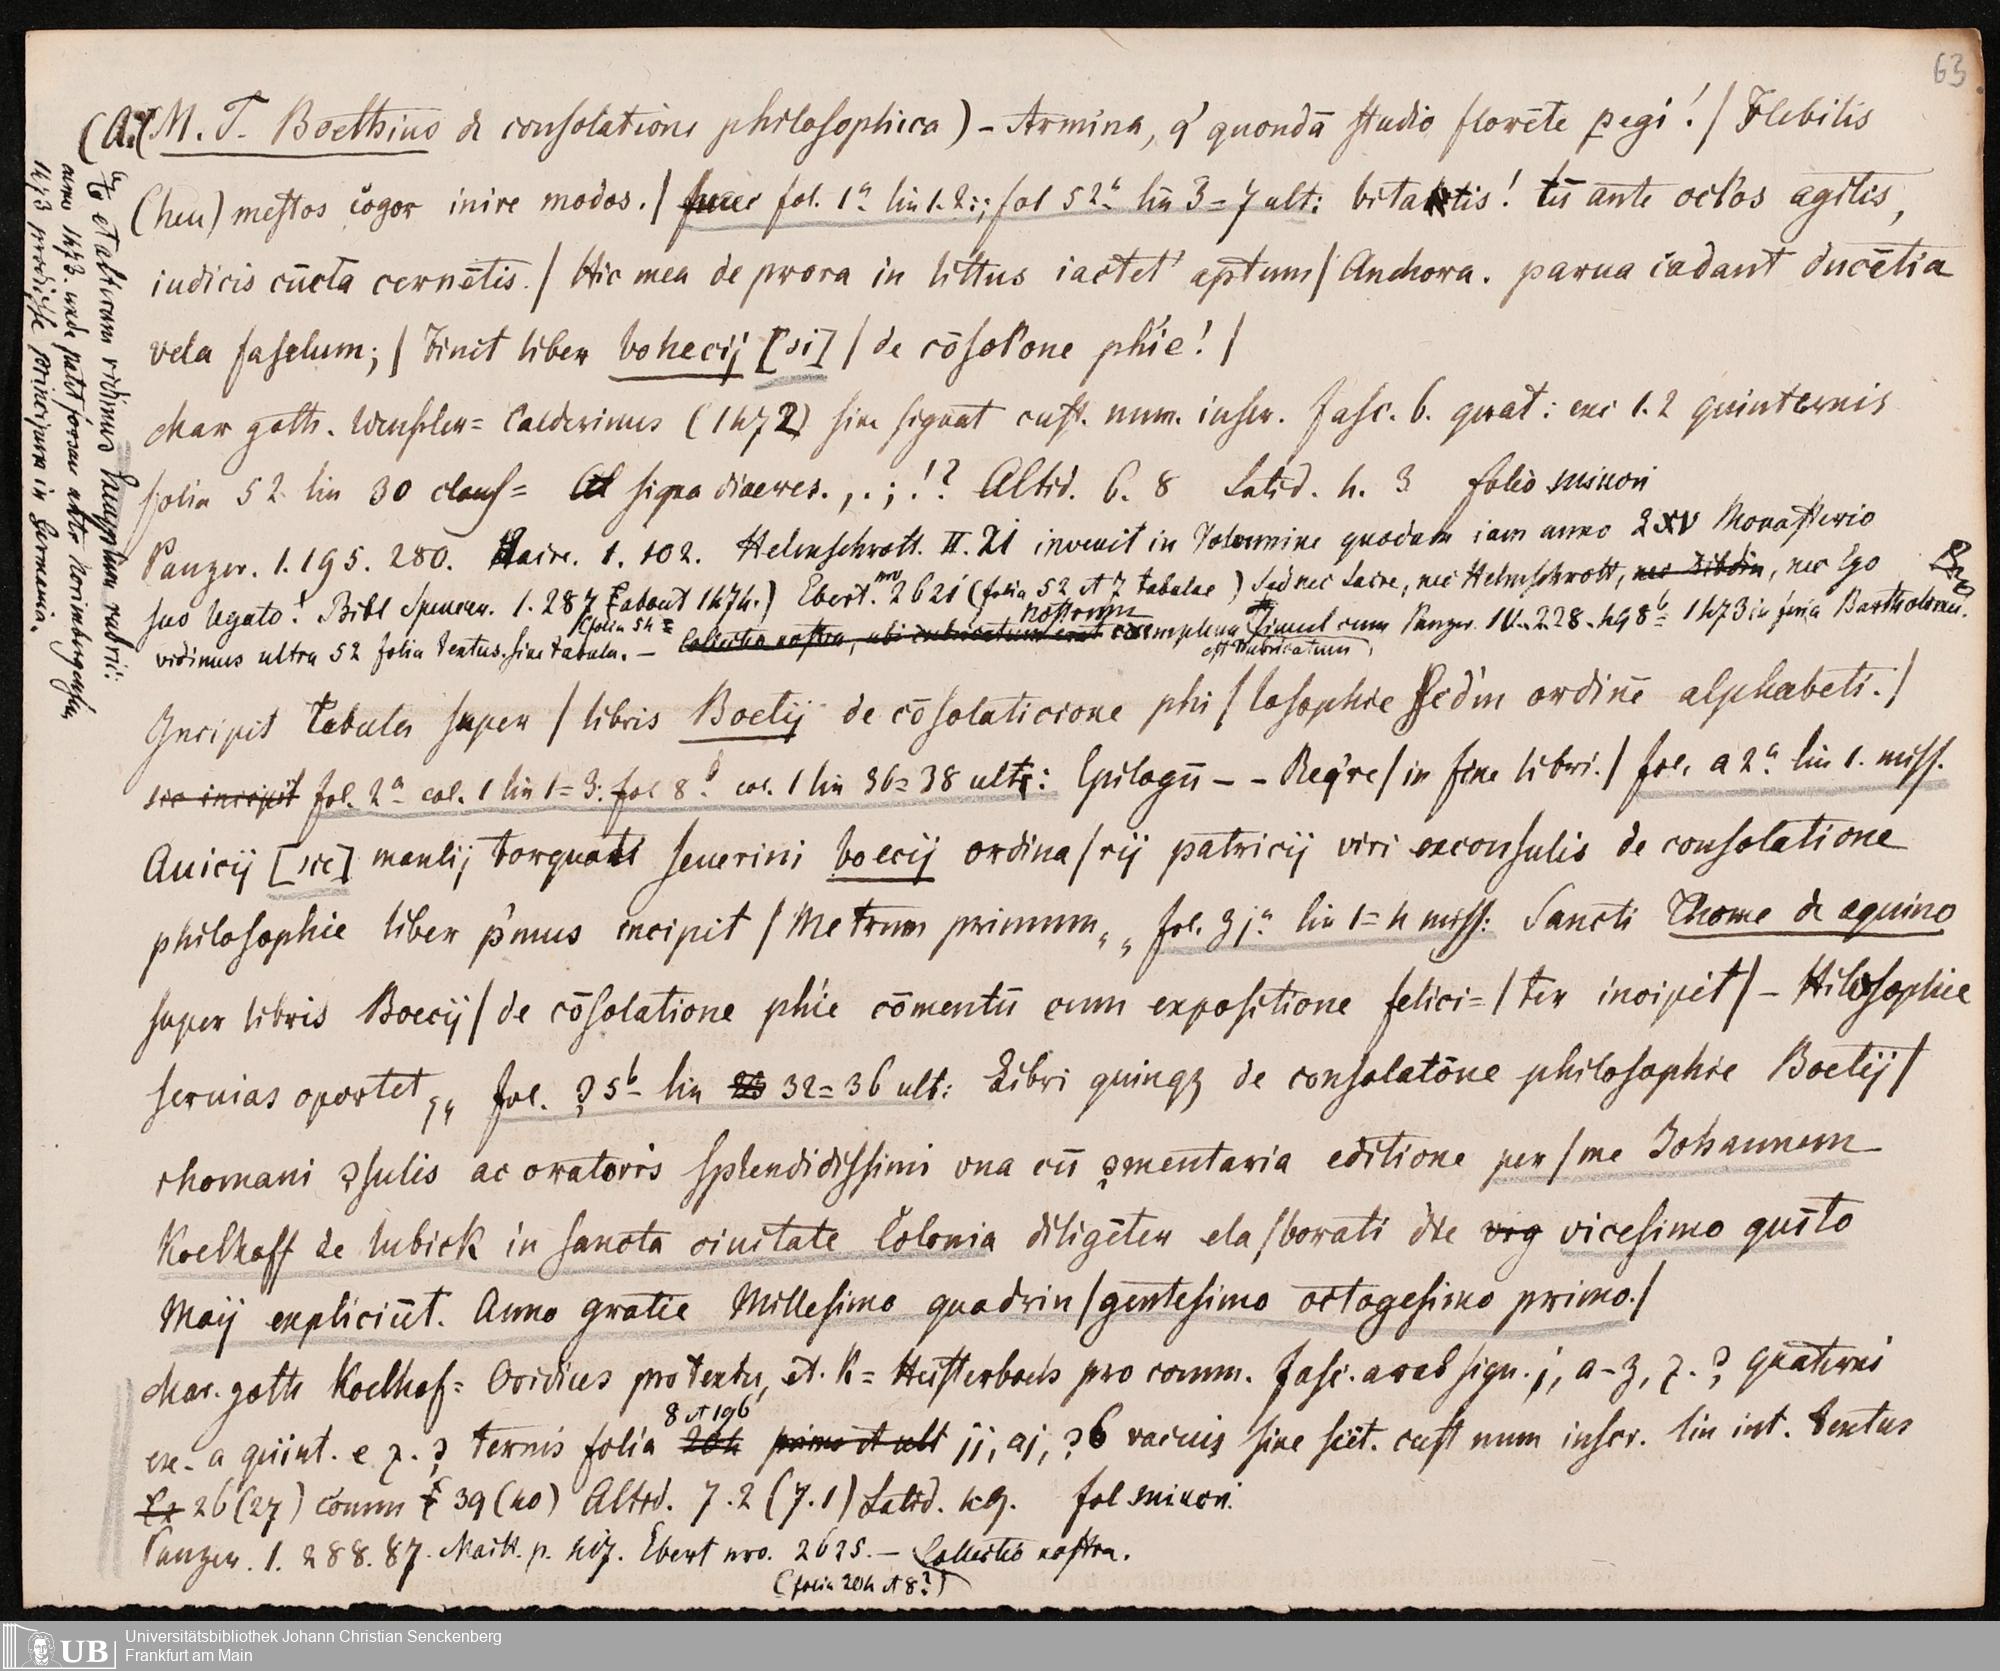 63
(A. (M. T. Boethius de consolatione philosophica) - Armina, q' quondā studio florēte pegi! / Flebilis
(heu) mestos cogor inire modos. / fol. 1a lin 1. 2.; fol 52a lin 3=7 ult: tis! cū ante oclos agitis,
iudicis cūcta cernētis. / Hic mea de prora in littus iactet' aptum / Anchora. parua cadant ducētia
vela faselum; / Finit liber bohecij [si] / de cōsolone phie! /
Char goth. Wenssler= Calderinus (1472) sine signat cust. num. inscr. Fasc. 6. quat: exc 1. 2 quinternis
folia 52 lin 30 clauf= signa diaeres. , . ; ! ? Altid. 6. 8 Latid. 4. 3 folio minori
Panzer. 1. 195. 280. Laire. 1. 102. Helmschrott. II. 21 invenit in Volumine quodam iam anno 2XV Monasterio
suo legato! Bibl Spencer. 1. 287 (about 1474.) Ebert. nro 2621 (folia 52 et 7 tabulae) Sed nec Laire, nec Helmschrott, nec Dibdin, nec Ego
(folia 54=
vidimus ultra 52 folia textus. sine tabula. - Collectio nostra, ubi rubricatum erat nostrum exemplum simul cum Panzer IV. 228. 498b= 1473 in feria Bartholomei.
est rubricatum
to et alterum vidimus Exemplum rubric:
anno 1473. unde patet forsan ante Norimbergensem
1473 prodiisse principem in Germania.
Incipit tabula super / libris Boetij de cōsolaticione phi / losophie Scd'm ordinē alphabeti. /
sic incipit fol. 2a col. 1 lin 1=3. fol 8b col. 1 lin 36=38 ult: Epilogū - - Req're / in fine libri. / fol. a 2a lin 1. miss.
Auicij [sic] manlij torquati seuerini boecij ordina / rij patricij viri exconsulis de consolatione
philosophie liber p'mus incipit / Metrum primum,, fol. 3 ja lin 1=4 miss: Sancti Thome de aquino
super libris Boecij / de cōsolatione phie cōmentū cum expositione felici= / ter incipit / - Hilosophie
seruias oportet,, fol. ? 5b lin 25 32=36 ult: Libri quinqz de consolatōne philosophie Boetij /
rhomani ɔsulis ac oratoris splendidissimi vna cū ɔmentaria editione per / me Johannem
Koelhoff de lubick in sancta ciuitate Colonia diligēter ela / borati die vig vicesimo quīto
Maij expliciūt. Anno gratie Millesimo quadrin / gentesimo octogesimo primo. /
Char. goth Koelhof= Ovidius pro textu, et. K= Heisterbach pro comm. Fasc. arab sign. j, a-z, z. ? quaternis
exc. a quint. e z. ? ternis folia 204 8 et 196 primo et ult jj, aj, ?6 vacuis sine scit. cust num inscr. lin int. textus
Ex 26 (27) comm 39 (40) Altid. 7. 2 (7. 1) Latid. 49. fol minori
Panzer. 1. 288. 87. Mait. p. 417. Ebert nro. 2625. - Collectio nostra.
(folia 204 et 8?)
UB
Universitätsbibliothek Johann Christian Senckenberg
Frankfurt am Main